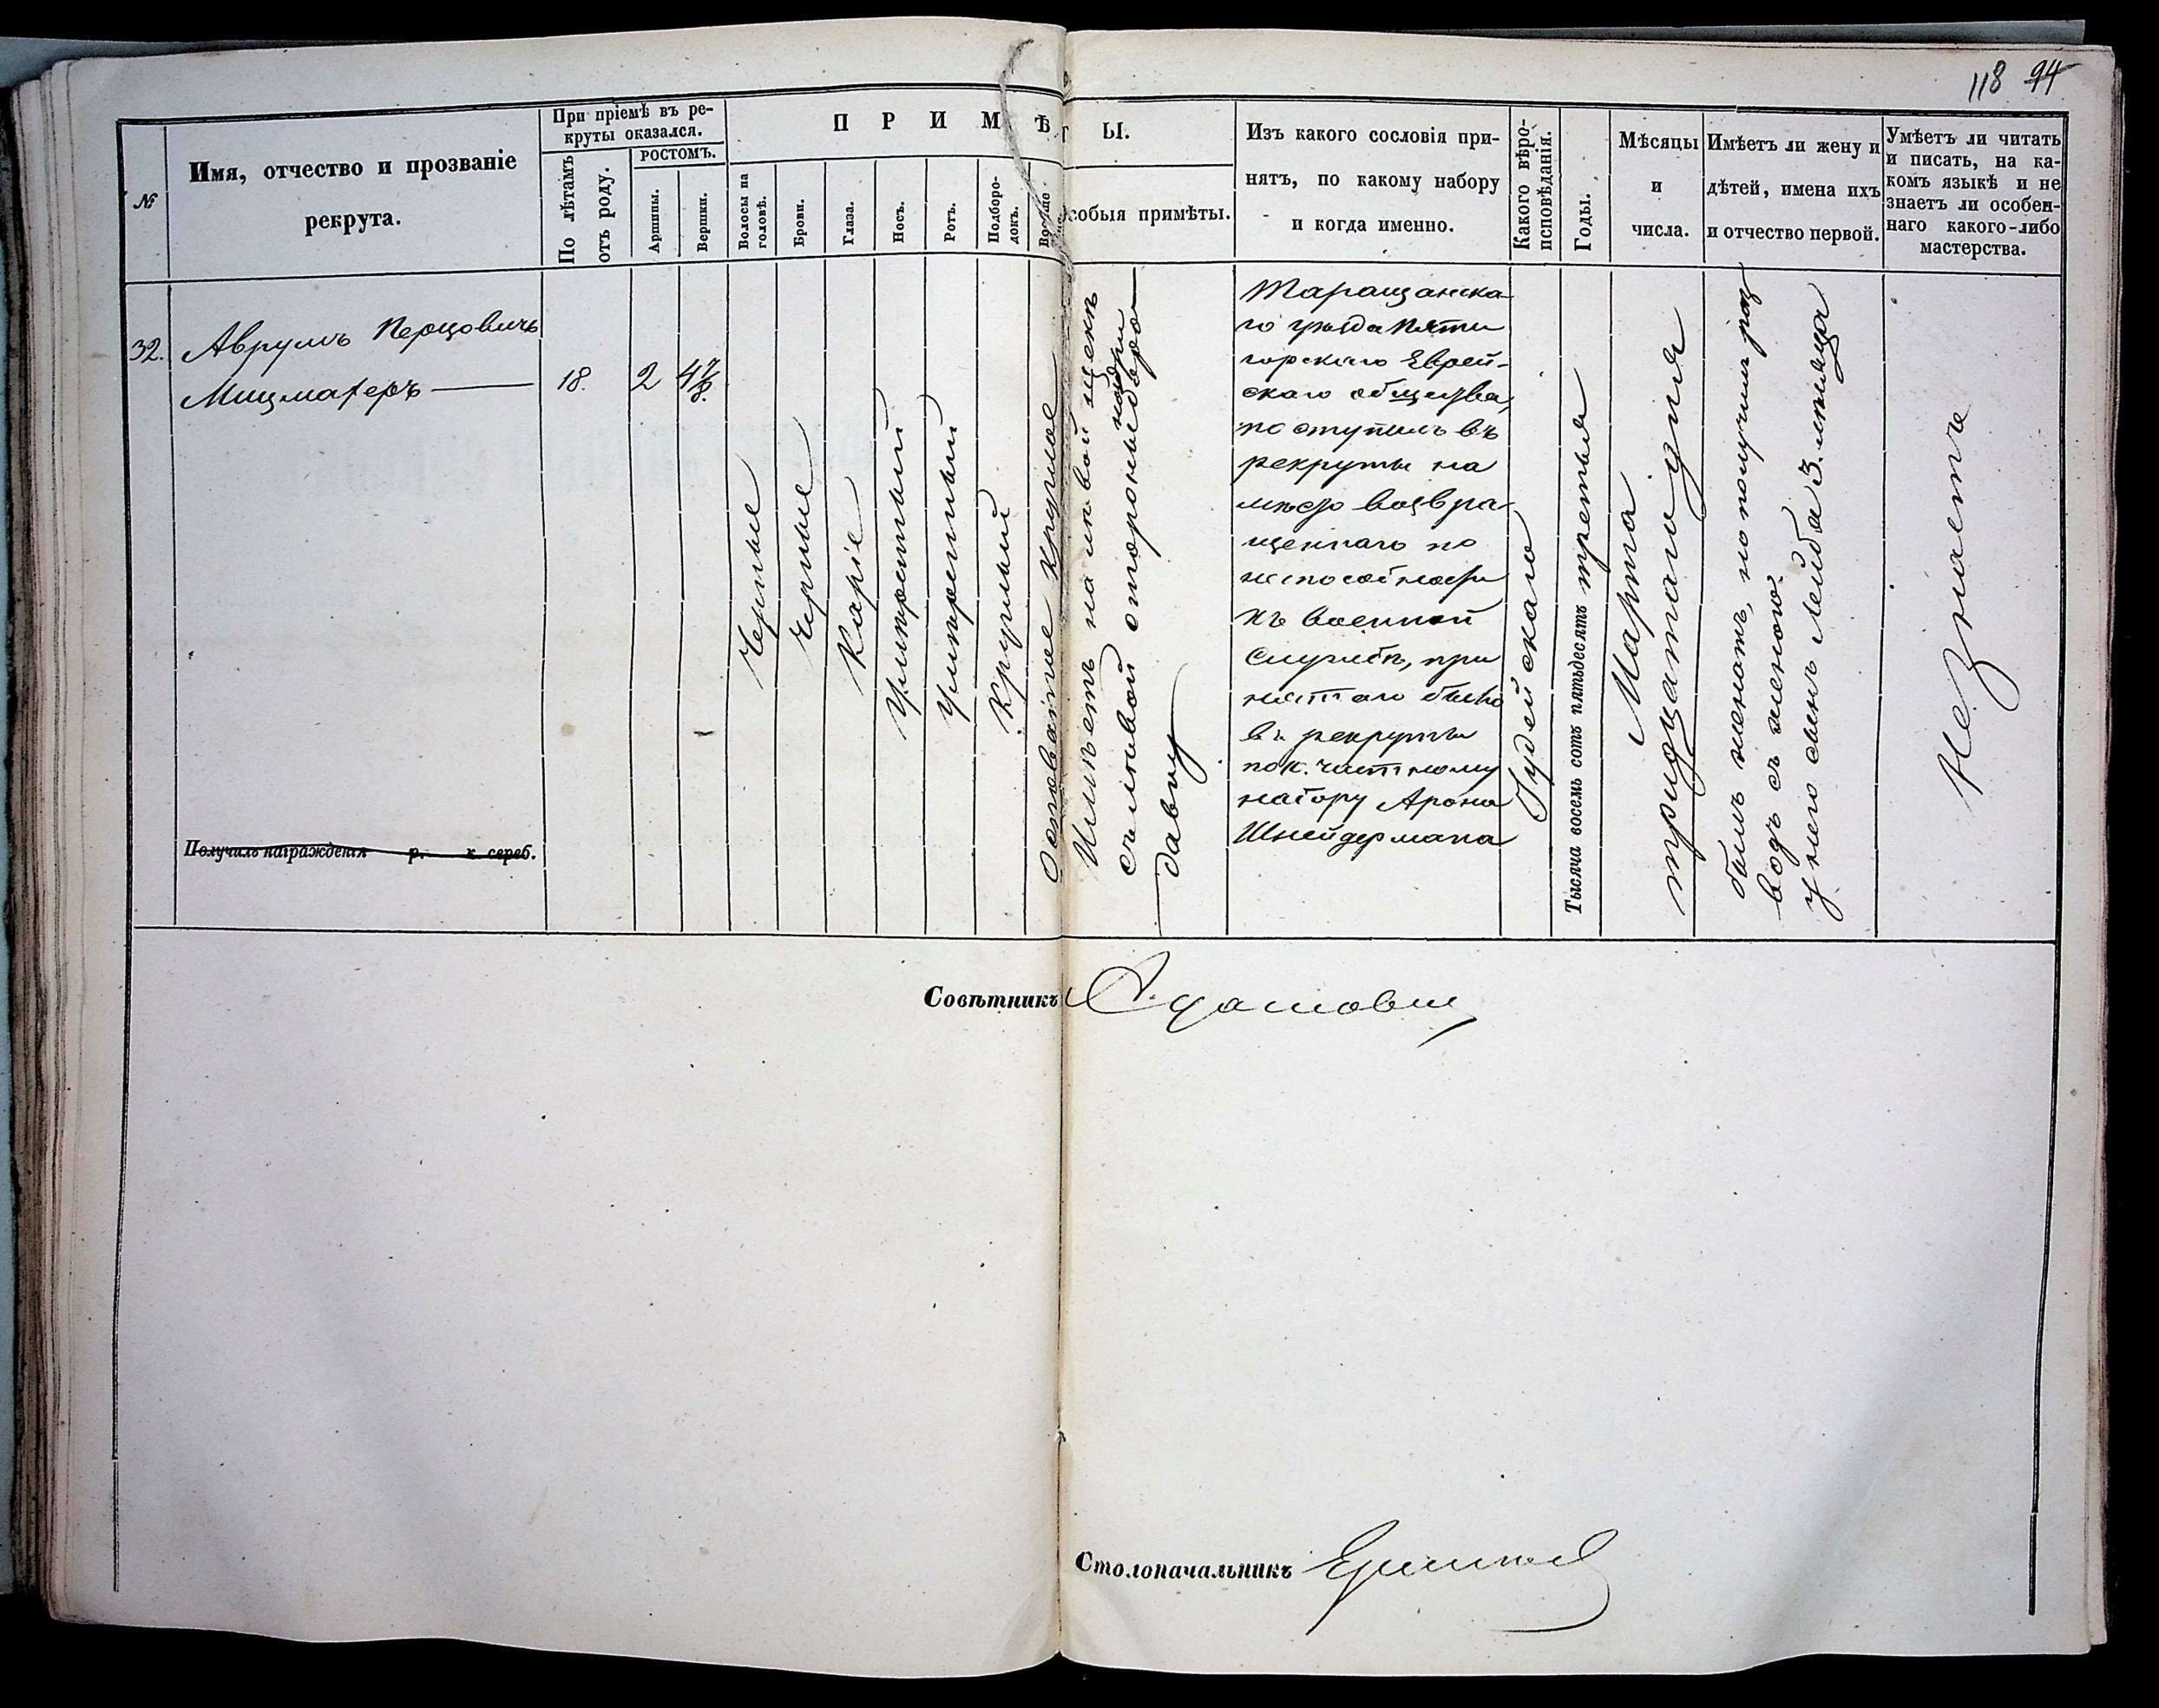 118 94
№
Имя, отчество и прозваніе
рекрута.
При пріемѣ въ ре-
круты оказался.
По лѣтамъ
отъ роду.
РОСТОМЪ.
Аршины.
Вершки.
П Р И М Ѣ Т Ы.
Волосы на
головѣ.
Брови.
Глаза.
Носъ.
Ротъ.
Подборо-
докъ.
собыя примѣты.
Изъ какого сословія при-
нятъ, по какому набору
и когда именно.
Какого вѣро-
исповѣданія.
Годы.
Мѣсяцы
и
числа.
Имѣетъ ли жену и
дѣтей, имена ихъ
и отчество первой.
Умѣетъ ли читать
и писать, на ка-
комъ языкѣ и не
знаетъ ли особен-
наго какого-либо
мастерства.
32.
Аврумъ Перцовичъ
Мицмахеръ
18.
2
4 7/8
Черные
Черные
Каріе
Умѣренный
Умѣренный
Круглый
Основаніе круглое
Имѣетъ на лѣвой щекѣ
съ лѣвой стороны
Таращанска-
го уѣзда Пяти
горскаго Еврей-
скаго общества,
поступилъ въ
рекруты на
мѣсто возвра-
щеннаго по
неспособности
къ военной
службѣ, при
нятаго было
въ рекруты
по к. частному
набору Арона
Шнейдермана
Іудейскаго
Тысяча восемь сотъ пятьдесятъ третья
Марта
тридцатаго дня
былъ женатъ, но получилъ раз
водъ съ женою.
у него сынъ Лейба 3. мѣсяца
Не знаетъ
Получилъ награжденія р. к. сереб.
Совѣтникъ
Столоначальникъ